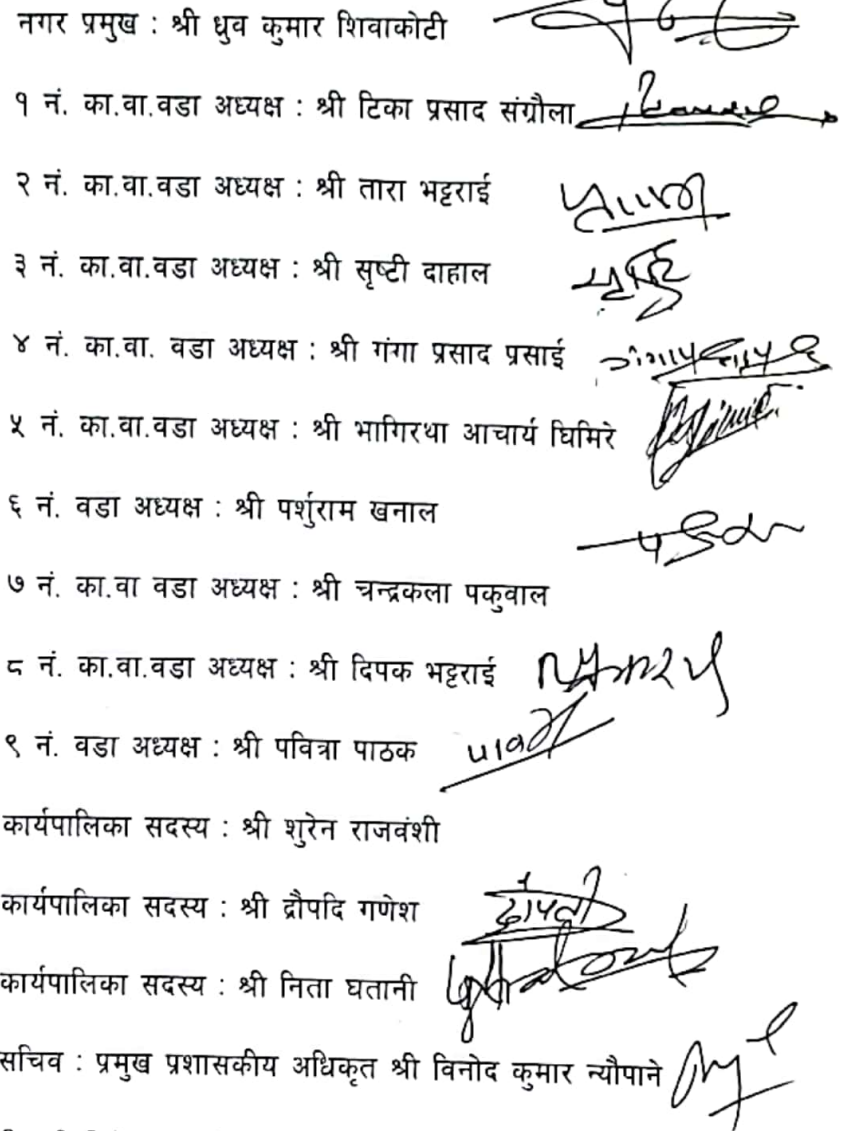 नगर प्रमुख : श्री ध्रुव कुमार शिवाकोटी
१ नं. का.वा.वडा अध्यक्ष : श्री टिका प्रसाद संग्रौला
२ नं. का.वा.वडा अध्यक्ष : श्री तारा भट्टराई
३ नं. का.वा.वडा अध्यक्ष : श्री सृष्टी दाहाल
४ नं. का.वा. वडा अध्यक्ष : श्री गंगा प्रसाद प्रसाई
५ नं. का.वा.वडा अध्यक्ष : श्री भागिरथा आचार्य घिमिरे
६ नं. वडा अध्यक्ष : श्री पर्शुराम खनाल
७ नं. का.वा वडा अध्यक्ष : श्री चन्द्रकला पकुवाल
८ नं. का.वा.वडा अध्यक्ष : श्री दिपक भट्टराई
९ नं. वडा अध्यक्ष : श्री पवित्रा पाठक
कार्यपालिका सदस्य : श्री शुरेन राजवंशी
कार्यपालिका सदस्य : श्री द्रौपदि गणेश
कार्यपालिका सदस्य : श्री निता घतानी
सचिव : प्रमुख प्रशासकीय अधिकृत श्री विनोद कुमार न्यौपाने